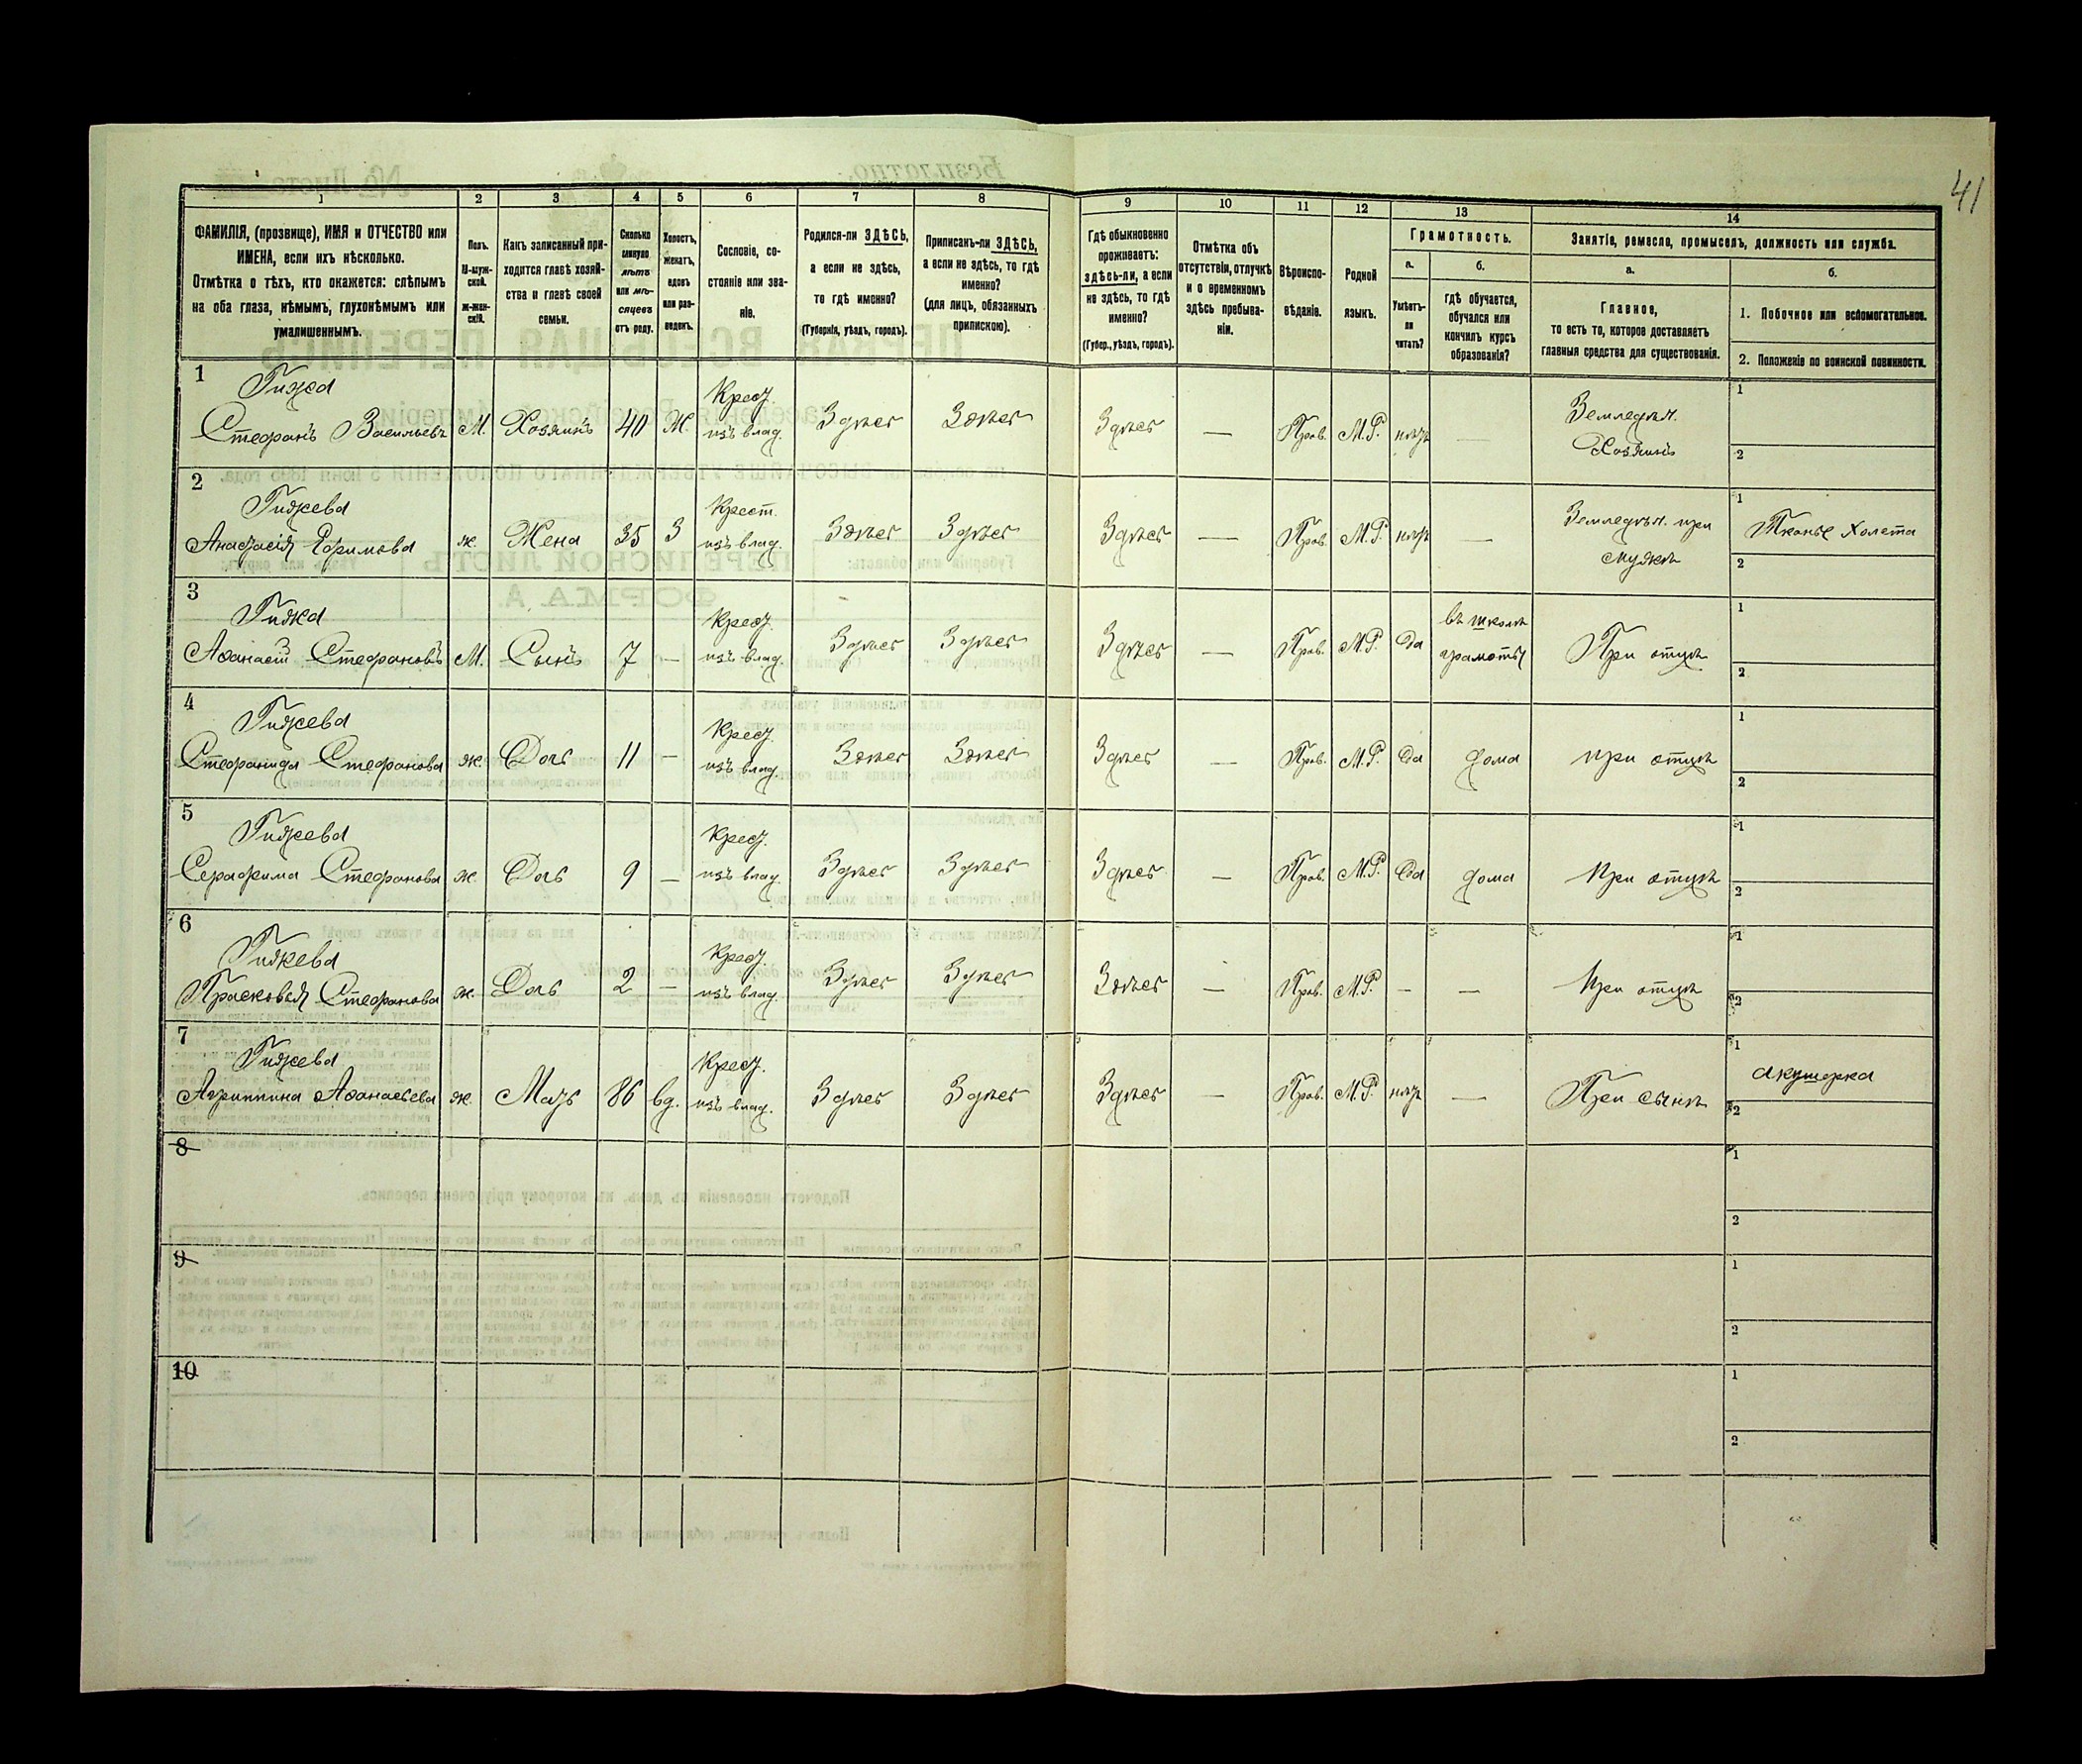 41
1 2 3 4 5 6 7 8 9 10 11 12 13 14
ФАМИЛІЯ, (прозвище), ИМЯ и ОТЧЕСТВО или
ИМЕНА, если ихъ нѣсколько.
Отмѣтка о тѣхъ, кто окажется: слѣпымъ
на оба глаза, нѣмымъ, глухонѣмымъ или
умалишеннымъ.
Полъ.
М-муж-
ской.
ж-жен-
скій.
Какъ записанный при-
ходится главѣ хозяй-
ства и главѣ своей
семьи.
Сколько
минуло
лѣтъ
или мѣ-
сяцевъ
отъ роду.
Холостъ,
женатъ,
вдовъ
или раз-
веденъ.
Сословіе, со-
стояніе или зва-
ніе.
Родился-ли ЗДѢСЬ,
а если не здѣсь,
то гдѣ именно?
(Губернія, уѣздъ, городъ).
Приписанъ-ли ЗДѢСЬ,
а если не здѣсь, то гдѣ
именно?
(для лицъ, обязанныхъ
припискою).
Гдѣ обыкновенно
проживаетъ:
здѣсь-ли, а если
не здѣсь, то гдѣ
именно?
(Губер., уѣздъ, городъ).
Отмѣтка объ
отсутствіи, отлучкѣ
и о временномъ
здѣсь пребыва-
ніи.
Вѣроиспо-
вѣданіе.
Родной
языкъ.
Грамотность.
а.
Умѣетъ-
ли
читать?
б.
гдѣ обучается,
обучался или
кончилъ курсъ
образованія?
Занятіе, ремесло, промыселъ, должность или служба.
а.
Главное,
то есть то, которое доставляетъ
главныя средства для существованія.
б.
1. Побочное или вспомогательное.
2. Положеніе по воинской повинности.
1 Гижа Крест. Земледѣл. 1
Стефанъ Васильевъ М. Хозяинъ 40 Ж. изъ влад. Здѣсь Здѣсь Здѣсь — Прав. М.Р. нѣтъ — Хозяинъ 2
2 Гижева Крест. Земледѣл. при 1 Тканье холста
Анафасія Ефимова ж Жена 35 З изъ влад. Здѣсь Здѣсь Здѣсь — Прав. М.Р. нѣтъ — мужѣ 2
3 Гижа Крест. въ школѣ 1
Аѳанасій Стефановъ М. Сынъ 7 — изъ влад. Здѣсь Здѣсь Здѣсь — Прав. М.Р. Да грамоты При отцѣ 2
4 Гижева Крест. 1
Стефанида Стефанова ж. Доч 11 — изъ влад. Здѣсь Здѣсь Здѣсь — Прав. М.Р. Да дома при отцѣ 2
5 Гижева Крест. 1
Серафима Стефанова ж. Доч 9 — изъ влад. Здѣсь Здѣсь Здѣсь — Прав. М.Р. Да дома При отцѣ 2
6 Гижева Крест. 1
Прасковья Стефанова ж. Доч 2 — изъ влад. Здѣсь Здѣсь Здѣсь — Прав. М.Р. — — При отцѣ 2
7 Гижева Крест. 1 акушерка
Агриппина Аѳанасьева ж. Мать 86 вд. изъ влад. Здѣсь Здѣсь Здѣсь — Прав. М.Р. нѣтъ — При сынѣ 2
8 1
2
9 1
2
10 1
2